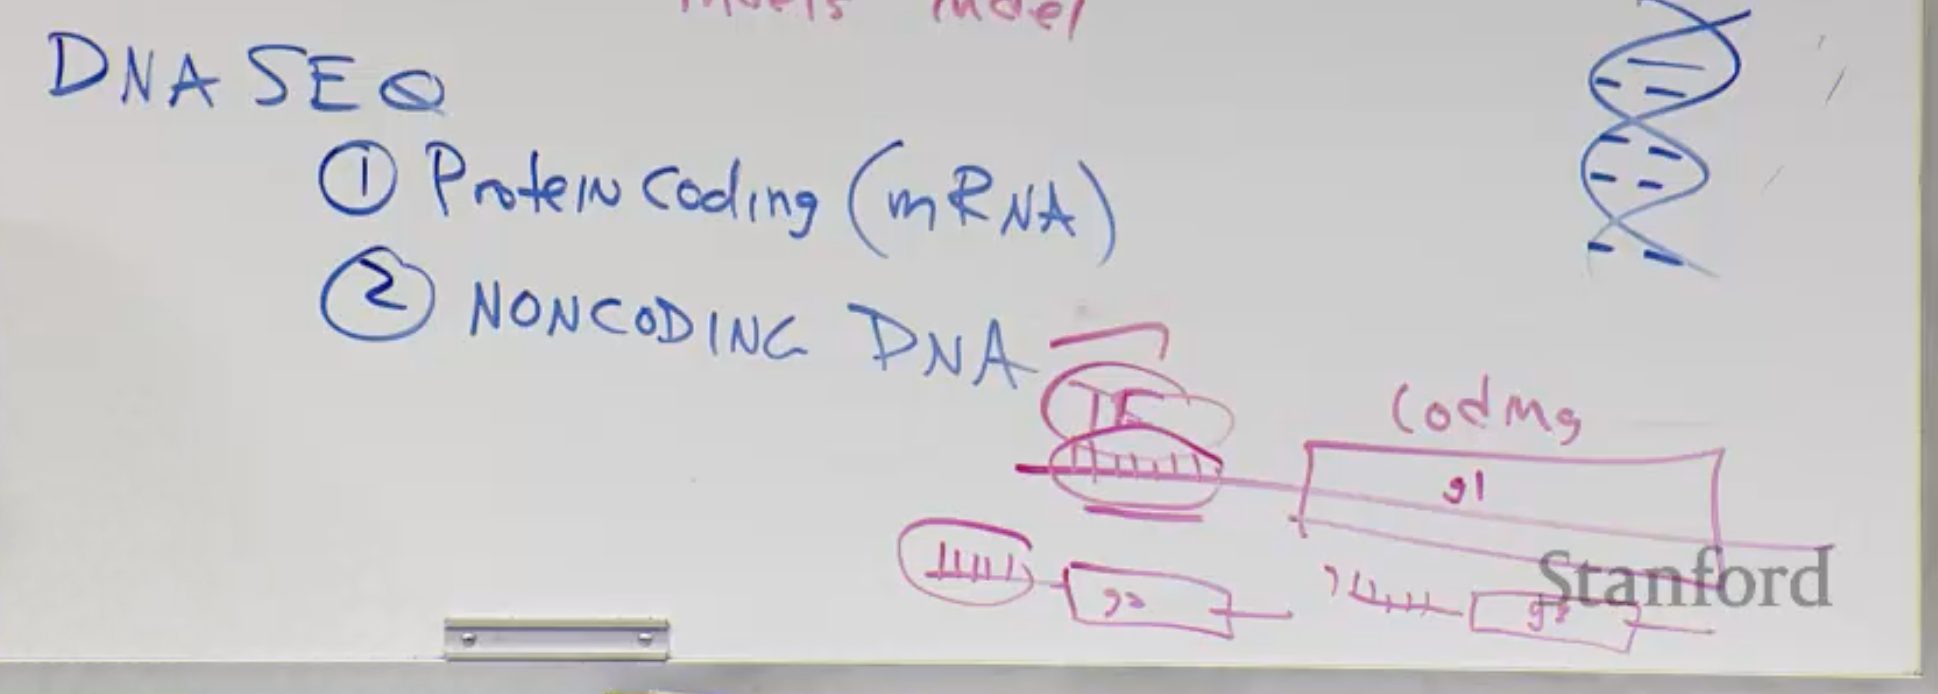 Indel
DNA SEQ
① Protein Coding (mRNA)
② NONCODING DNA
TF
Coding
g1
g2
g3
Stanford